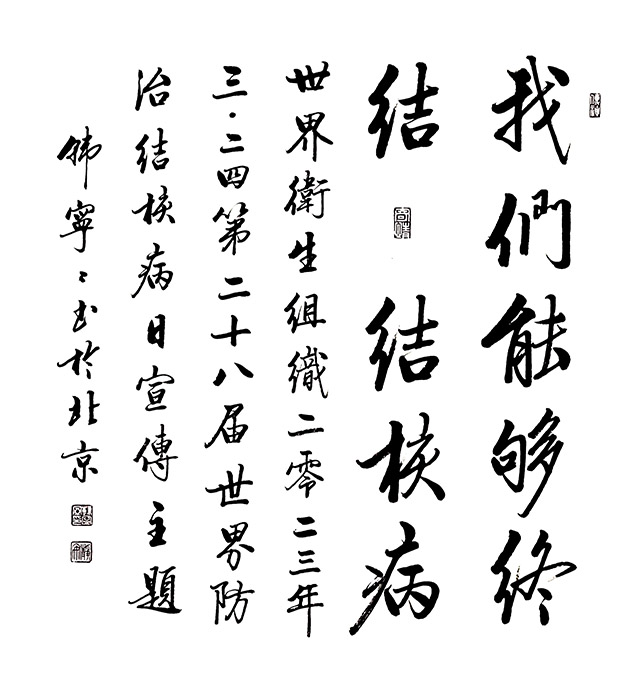 我們能够终
结 结核病
世界衛生组織二零二三年
三·二四第二十八届世界防
治结核病日宣傳主题
韩寧寧书於北京